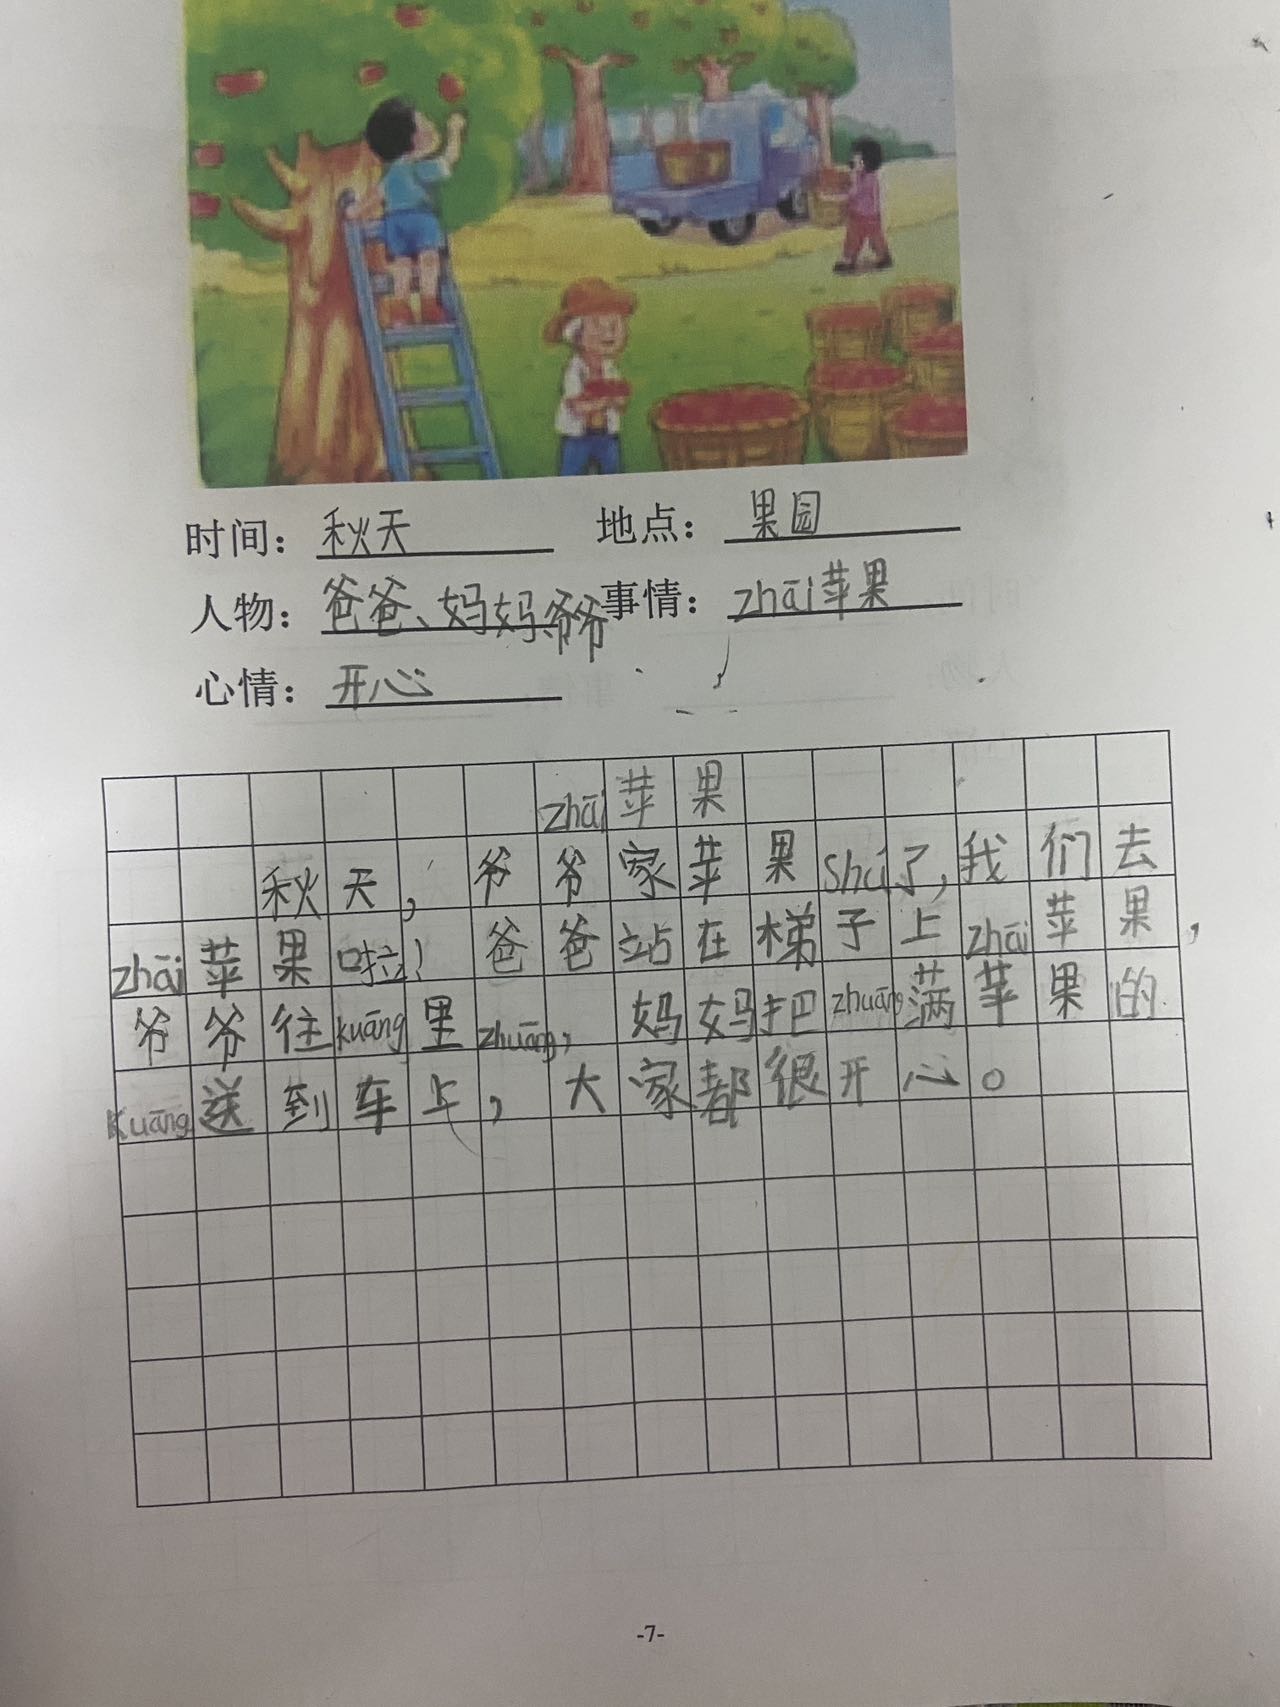 时间：秋天 地点：果园
人物：爸爸、妈妈爷爷 事情：zhāi苹果
心情：开心
zhāi苹果
秋天，爷爷家苹果shú了，我们去
zhāi苹果啦！爸爸站在梯子上zhāi苹果，
爷爷往kuāng里zhuāng，妈妈把zhuāng满苹果的
kuāng送到车上，大家都很开心。
-7-